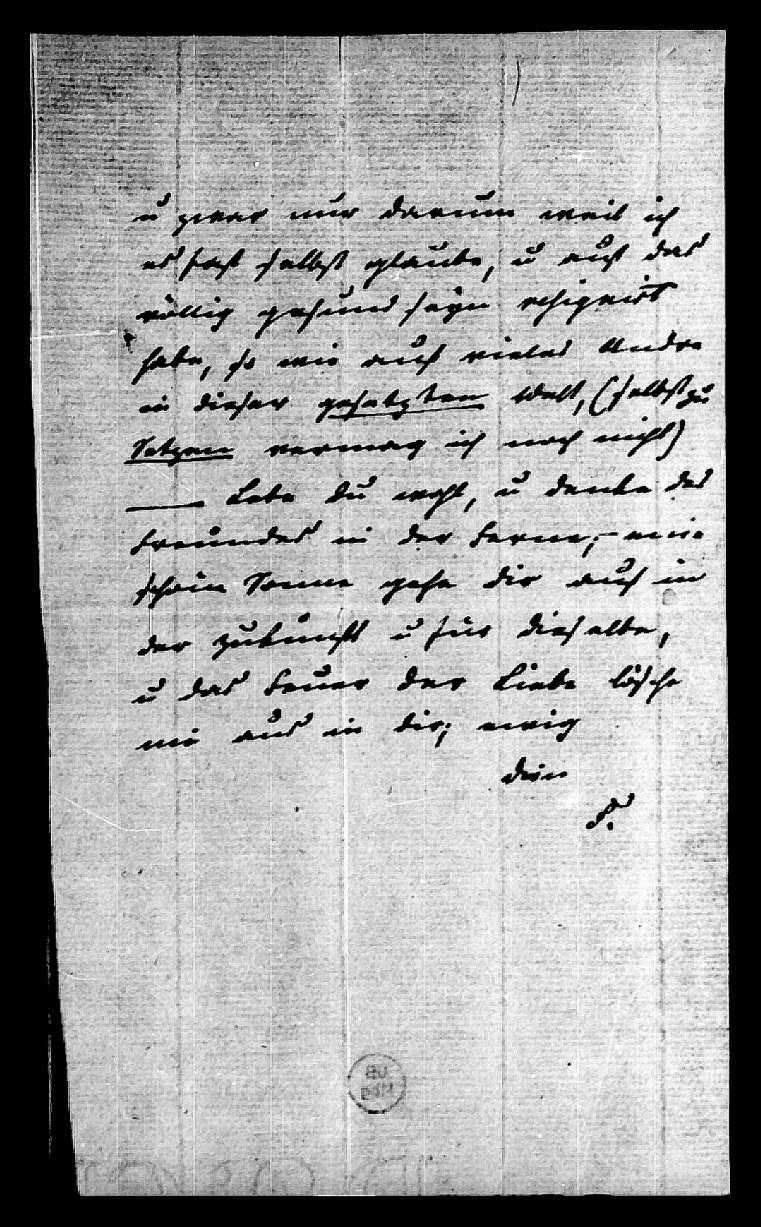 u zwar nur darum weil ich
es fast selbst glaube, u auf das
völlig gesund seyn resignirt
habe, so wie auf vieles Andre
in dieser gesetzten Welt, (selbst zu
Setzen vermag ich noch nicht)
— Lebe du wohl, u denke des
Freundes in der Ferne; – eine
schöne Sonne gehe dir auf in
der Zukunft u für dieselbe,
u das Feuer der Liebe lösche
nie aus in dir; ewig
dein
F.